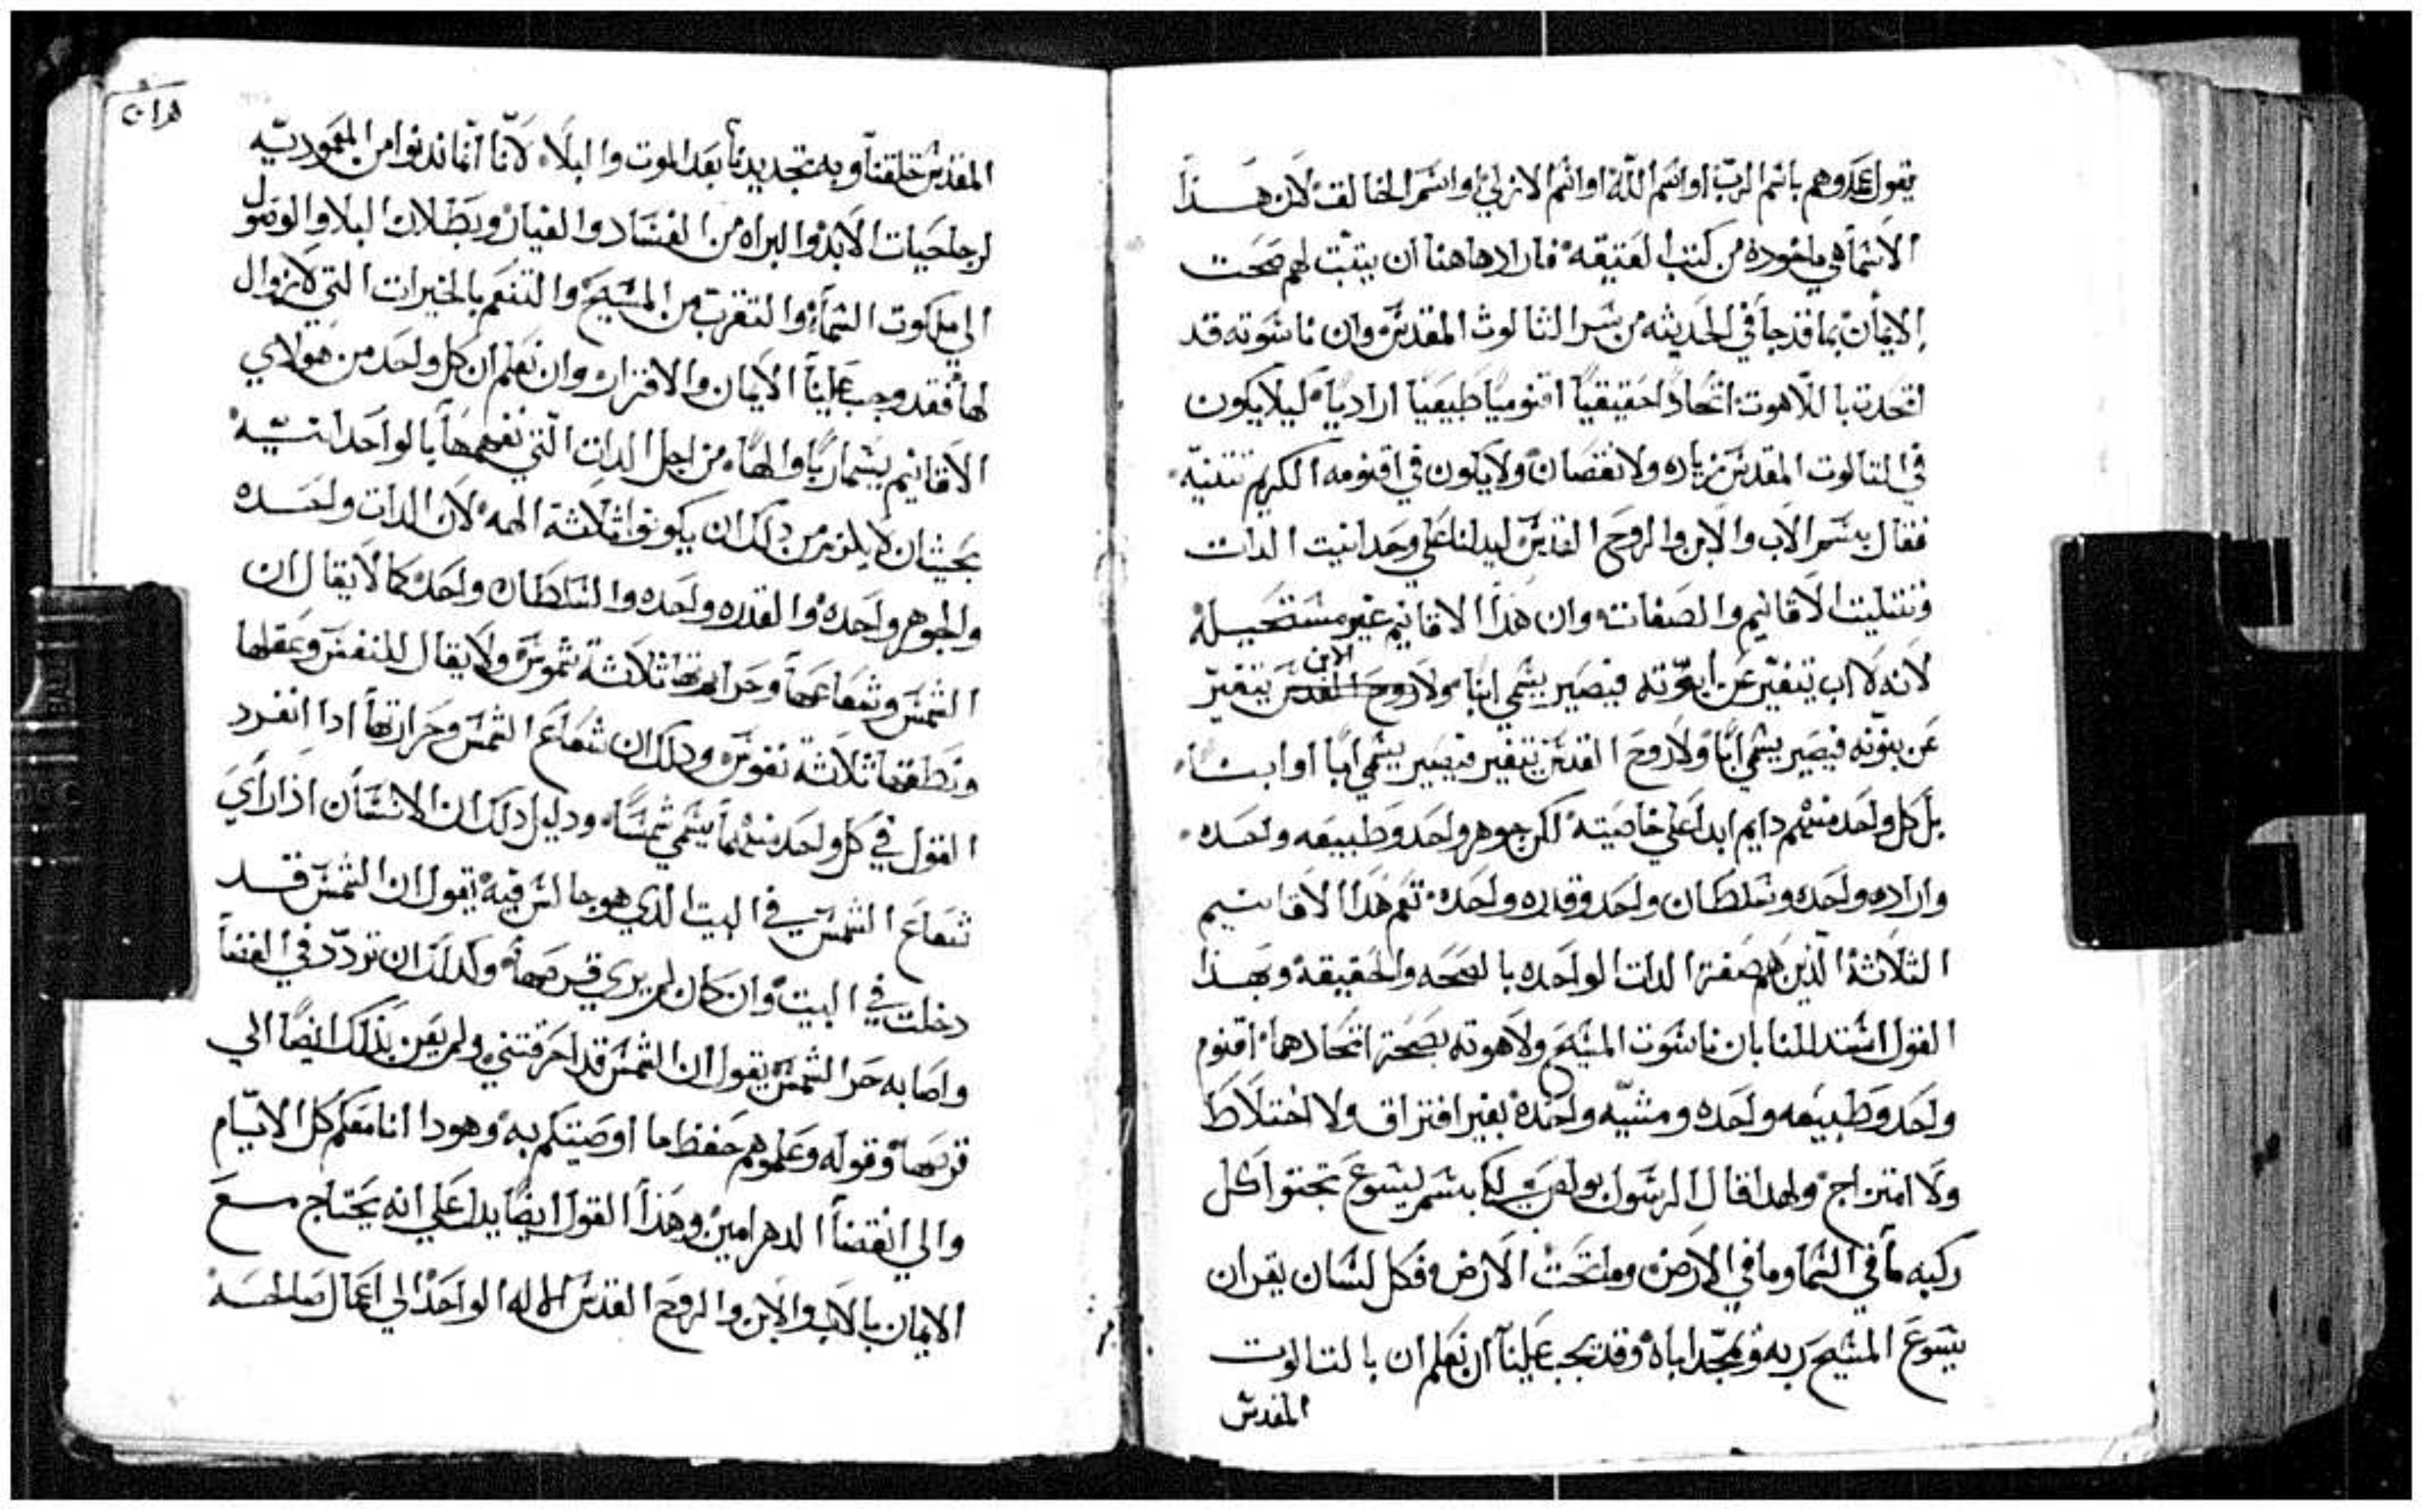 يقول عمدوهم باسم الرب او اسم الله او اسم الازلي او اسم الخالف لان هذا
الاسما هي ماخوده من كتب العتيقه فاراد هاهنا ان يتبت لهم صحت
الايمان بما قد جا في الحديثه من سر الثالوث المقدس وان ناسوته قد
اتحدت باللاهوت اتحادا حقيقيا اقنوميا طبيعيا اراديا كيلا يكون
في التالوت المقدس زياده ولا نقصان ولا يكون في اقنومه الكريم تتنيه
فقال بسم الاب والابن والروح القدس ليدلنا علي وحدانيت الدات
وتتليت الاقانيم والصفات وان هدا الاقانيم غير مستحيله
لانه لا اب يتغير عن ابوته فيصير يسمي ابنا ولا الابن يتغير
عن بنوته فيصير يسمي ابا ولا روح القدس يتغير فيصير يسمي ابا او ابنا
بل كل واحد منهم دايم ابدا علي خاصيته لكن جوهر واحد وطبيعه واحده
واراده واحده وسلطان واحد وقدره واحده نعم هدا الاقانيم
الثلاثة الدين هم صفة الدات الواحده بالصحه والحقيقه وبهذا
القول استدللنا بان ناسوت المسيح ولاهوته بصحة اتحادهما اقنوم
واحد وطبيعه واحده ومشيه واحده بغير افتراق ولا اختلاط
ولا امتزاج ولهدا قال الرسول بولص لكيا بسم ليسوع تجتوا كل
ركبه ما في السما وما في الارض وما تحت الارض وكل لسان يقر ان
يسوع المسيح ربه ويمجد اباه وقد يجب علينا ان نعلم ان بالتالوت
المقدس
المقدس خلقنا وبه تجديدنا بعد الموت والبلا لانا انما ندنوا من المعموديه
لرجا حيات الابد والبراه من الفساد والفيان وبطلان البلا والوصول
الي ملكوت السما والتقرب من المسيح والتنعم بالخيرات التي لا زوال
لها فقد وجب علينا الايمان والاقرار وان نعلم ان كل واحد من هولاي
الاقانيم يسما ربا والها من اجل الدات التي نفهمها بالواحدانيه
بحيث ان لا يلزم من دلك ان يكونوا ثلاثة الهه لان الدات واحده
والجوهر واحده والقدره واحده والسلطان واحد كما لا يقال ان
الشمس وشعاعها وحرارتها ثلاثة شموس ولا يقال للنفس وعقلها
ونطقها ثلاثة نفوس ودلك ان شعاع الشمس وحرارتها ادا انفرد
القول في كل واحد منهما يسمي شمسا ودليل دلك ان الانسان اذا راي
شعاع الشمس في البيت الدي هو جالس فيه يقول ان الشمس قد
دخلت في البيت وان كان لم يري قرصها وكدلك ان تردد في الفنا
واصابه حر الشمس يقول ان الشمس قد احرقتني ولم يعين بذلك ايضا الي
قرصها وقوله وعلموهم حفظ ما اوصيتكم به وهودا انا معكم كل الايام
والي انقضا الدهر امين وهذا القول ايضا يدل علي انه يحتاج مع
الايمان بالاب والابن والروح القدس الاله الواحد الي اعمال صالحه